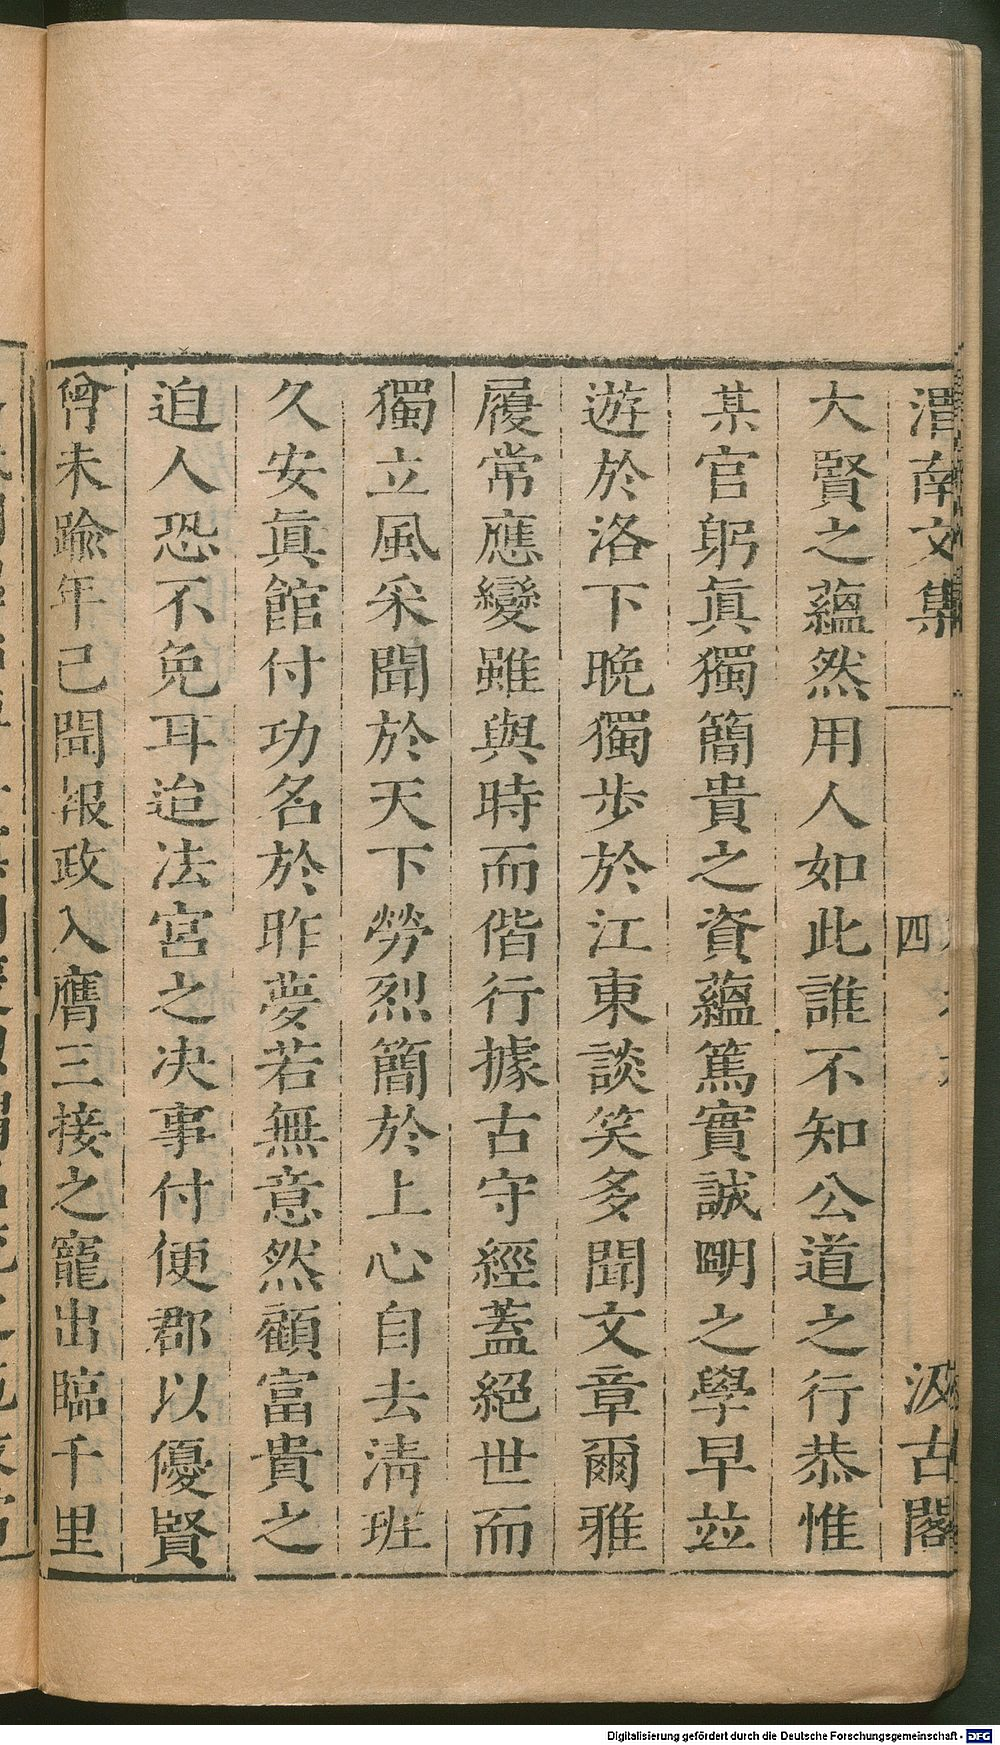 渭南文集 四 汲古閣
大賢之蘊然用人如此誰不知公道之行恭惟
某官躬眞獨簡貴之資蘊篤實誠明之學早竝
遊於洛下晚獨步於江東談笑多聞文章爾雅
履常應變雖與時而偕行據古守經蓋絕世而
獨立風采聞於天下勞烈簡於上心自去淸班
久安眞館付功名於昨夢若無意然顧富貴之
迫人恐不免耳迨法宮之决事付便郡以優賢
曾未踰年已聞報政入膺三接之寵出臨千里
Digitalisierung gefördert durch die Deutsche Forschungsgemeinschaft - DFG